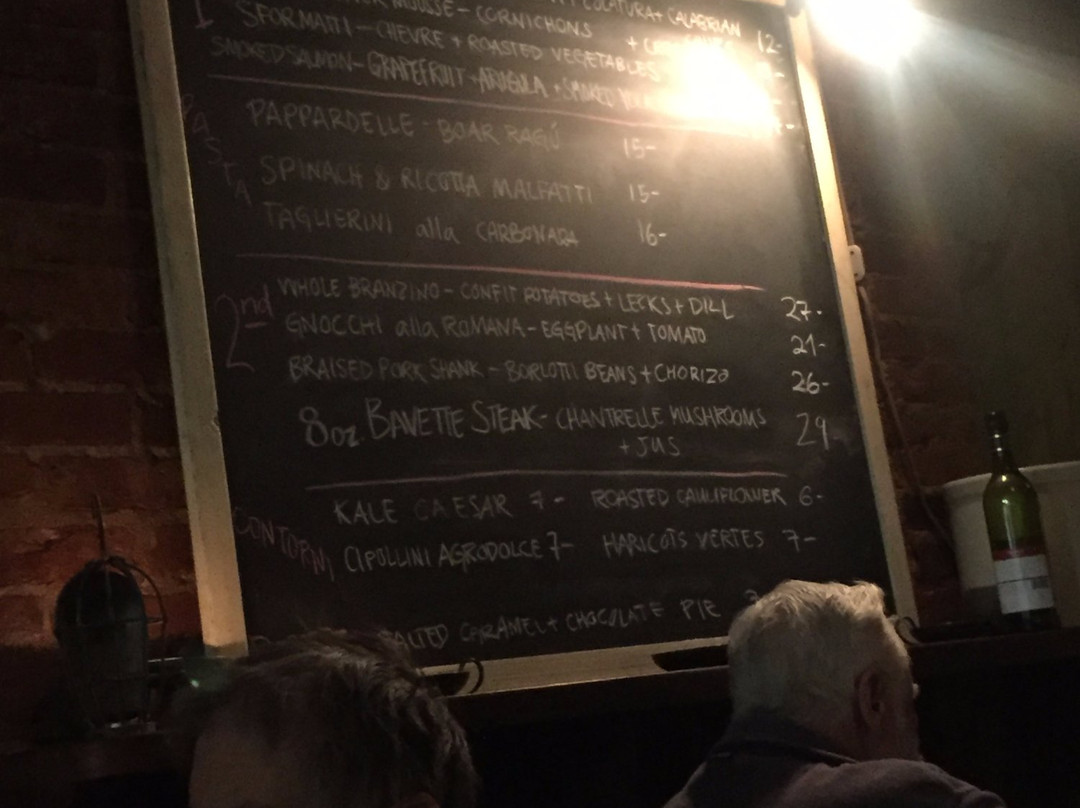 COLATURA + CALABRIAN
MOUSSE - CORNICHONS 12-
SFORMATTI - CHEVRE + ROASTED VEGETABLES
SMOKED SALMON - GRAPEFRUIT + ARUGULA + SMOKED
PASTA
PAPPARDELLE - BOAR RAGÚ 15-
SPINACH & RICOTTA MALFATTI 15-
TAGLIERINI alla CARBONARA 16-
2nd
WHOLE BRANZINO - CONFIT POTATOES + LEEKS + DILL 27-
GNOCCHI alla ROMANA - EGGPLANT + TOMATO 21-
BRAISED PORK SHANK - BORLOTTI BEANS + CHORIZO 26-
8oz. BAVETTE STEAK - CHANTRELLE MUSHROOMS 29
+ JUS
CONTORNI
KALE CAESAR 7- ROASTED CAULIFLOWER 6-
CIPOLLINI AGRODOLCE 7- HARICOTS VERTES 7-
SALTED CARAMEL + CHOCOLATE PIE